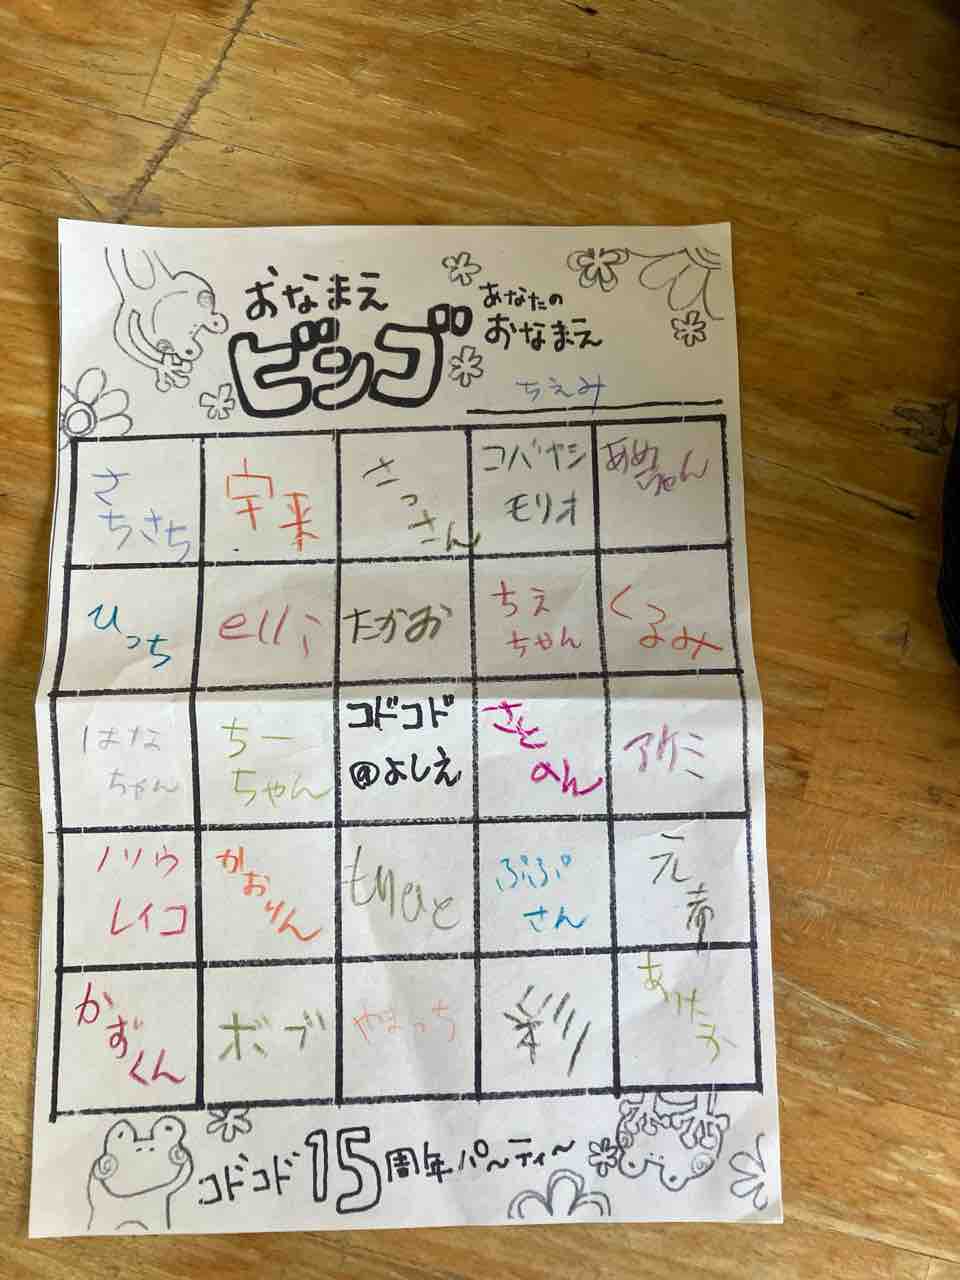 おなまえ
ビンゴ
あなたの
おなまえ
ちえみ
さ
ちさち
宇来
さっさん
コバヤシ
モリオ
あめちゃん
ひっち
elli
たかお
ちえ
ちゃん
くるみ
はな
ちゃん
ちー
ちゃん
コドコド
@よしえ
さと
のん
アケミ
ノリウ
レイコ
かおりん
ぷぷ
さん
かずくん
ボブ
やまっち
彩
コドコド15周年パ〜ティ〜